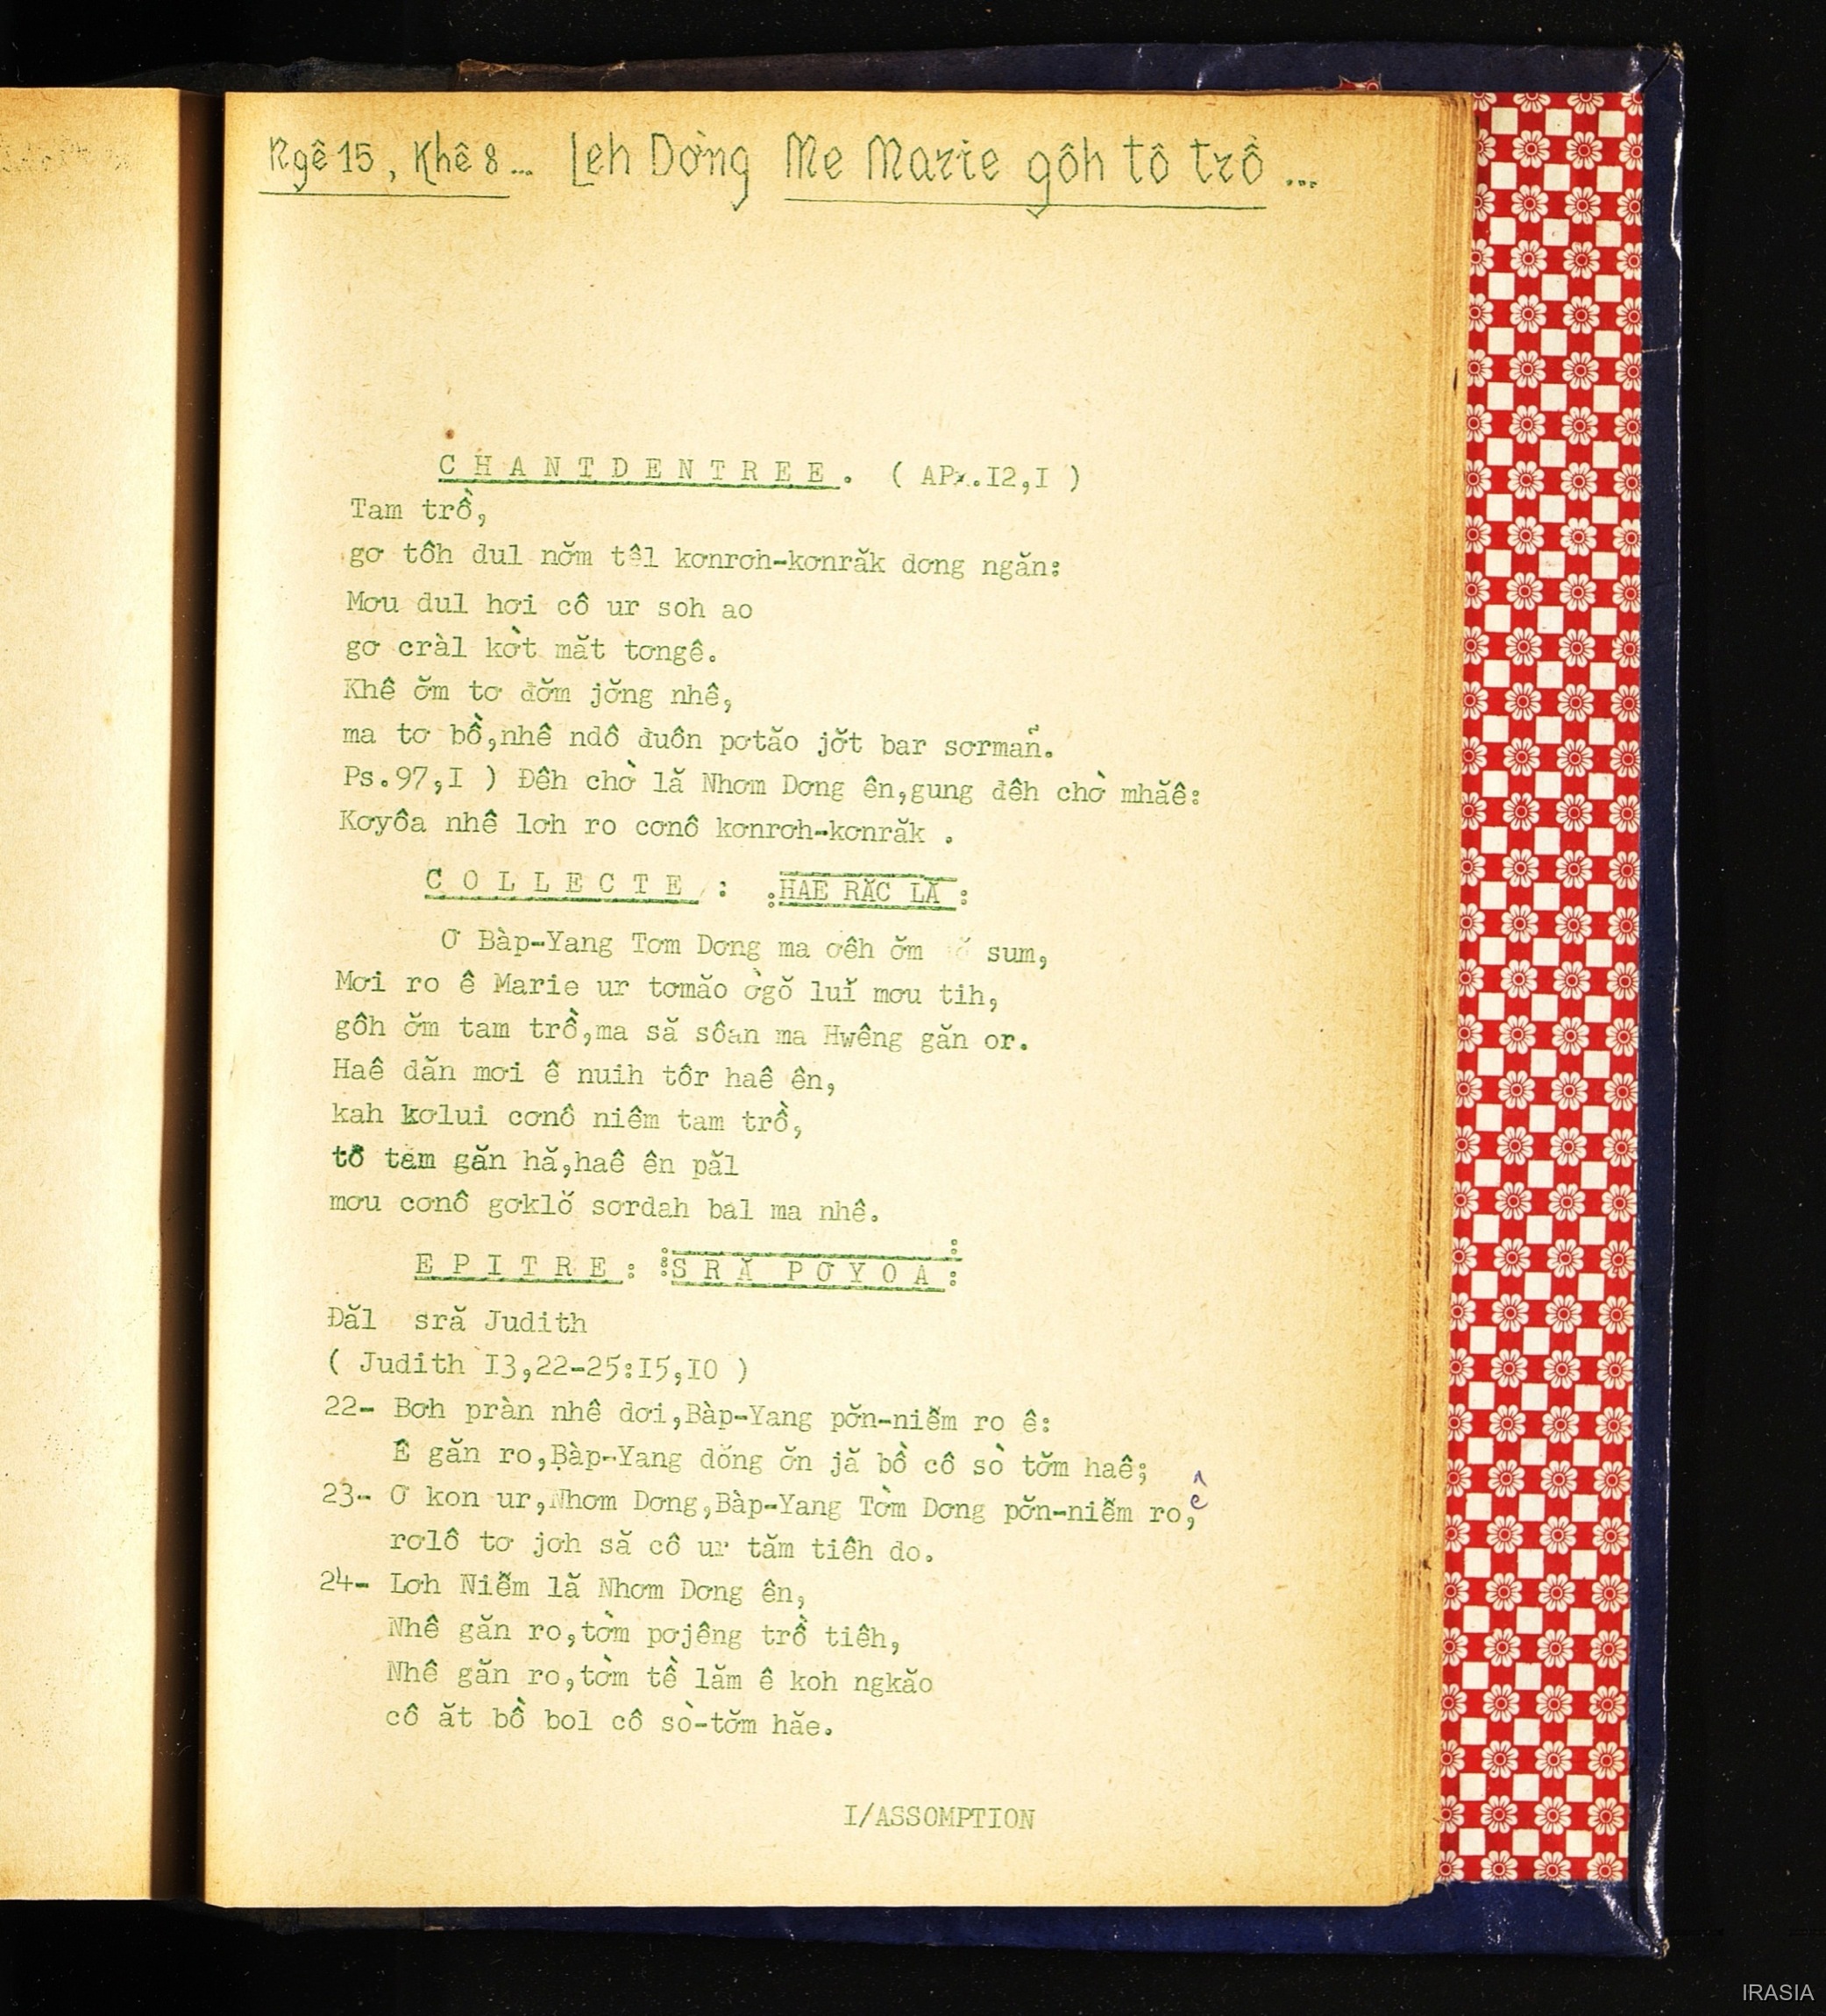 Ngê 15, Khê 8... Leh Dờng Me Marie gôh tô trồ...
C H A N T D E N T R E E . ( APx.I2,I )
Tam trồ,
gơ tôh dul nờm têl kơnrơh-kơnrăk dơng ngăn:
Mơu dul hơi cô ur soh ao
gơ cràl kờt măt tơngê.
Khê ờm tơ đờm jờng nhê,
ma tơ bồ,nhê ndô đuôn pơtăo jờt bar sơrmañ.
Ps.97,I ) Đêh chờ lă Nhơm Dơng ên,gung đêh chờ mhăê:
Kơyôa nhê lơh ro cơnô kơnrơh-kơnrăk .
C O L L E C T E : :HAE RĂC LĂ :
Ơ Bàp-Yang Tơm Dơng ma ơêh ờm sum,
Mơi ro ê Marie ur tơmăo ờgŏ luĭ mơu tih,
gôh ờm tam trồ,ma să sôan ma Hwêng găn or.
Haê dăn mơi ê nuih tôr haê ên,
kah kơlui cơnô niêm tam trồ,
tô tam găn hă,haê ên păl
mơu cơnô gơklŏ sơrdah bal ma nhê.
E P I T R E : :S R Ă P Ơ Y O A :
Đăl sră Judith
( Judith I3,22-25:I5,I0 )
22- Bơh pràn nhê dơi,Bàp-Yang pờn-niễm ro ê:
Ê găn ro,Bàp-Yang dŏng ờn jă bồ cô sò tờm haê;
23- Ơ kon ur,Nhơm Dơng,Bàp-Yang Tờm Dơng pờn-niễm ro ê,
rơlô tơ jơh să cô ur tăm tiêh do.
24- Lơh Niễm lă Nhơm Dơng ên,
Nhê găn ro,tờm pơjêng trồ tiêh,
Nhê găn ro,tờm tề lăm ê koh ngkăo
cô ăt bồ bol cô sò-tờm hăe.
I/ASSOMPTION
IRASIA